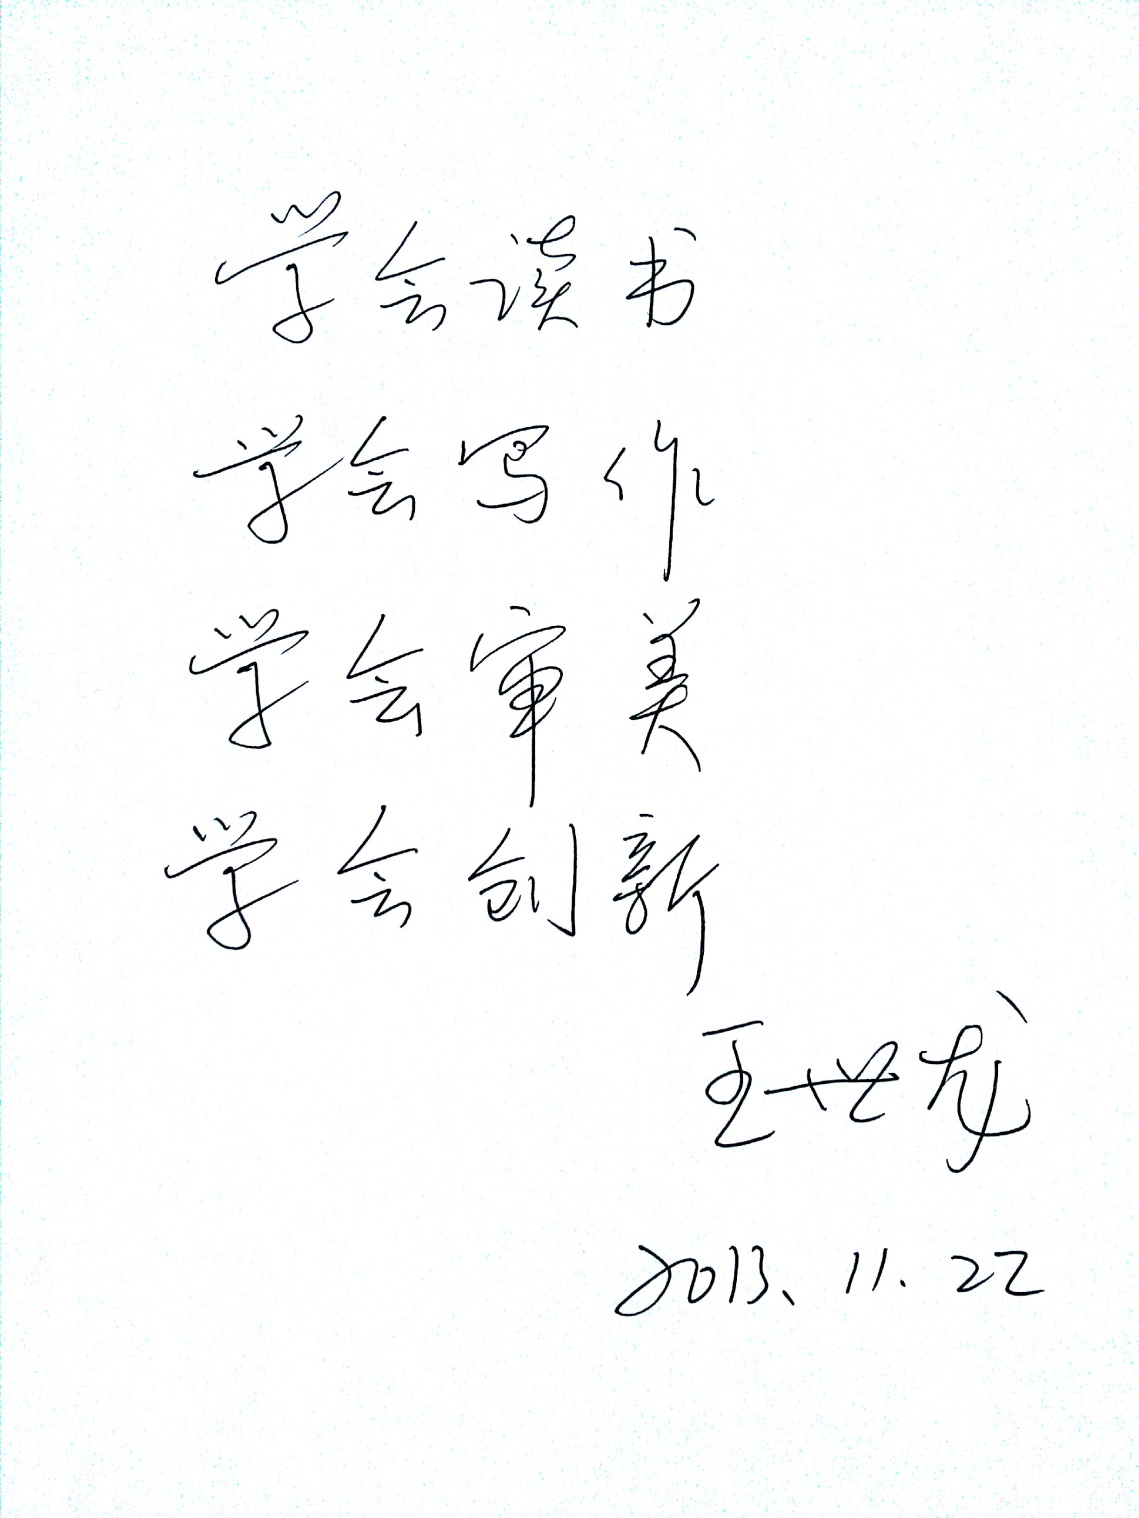 学会读书
学会写作
学会审美
学会创新
王世龙
2013、11.22